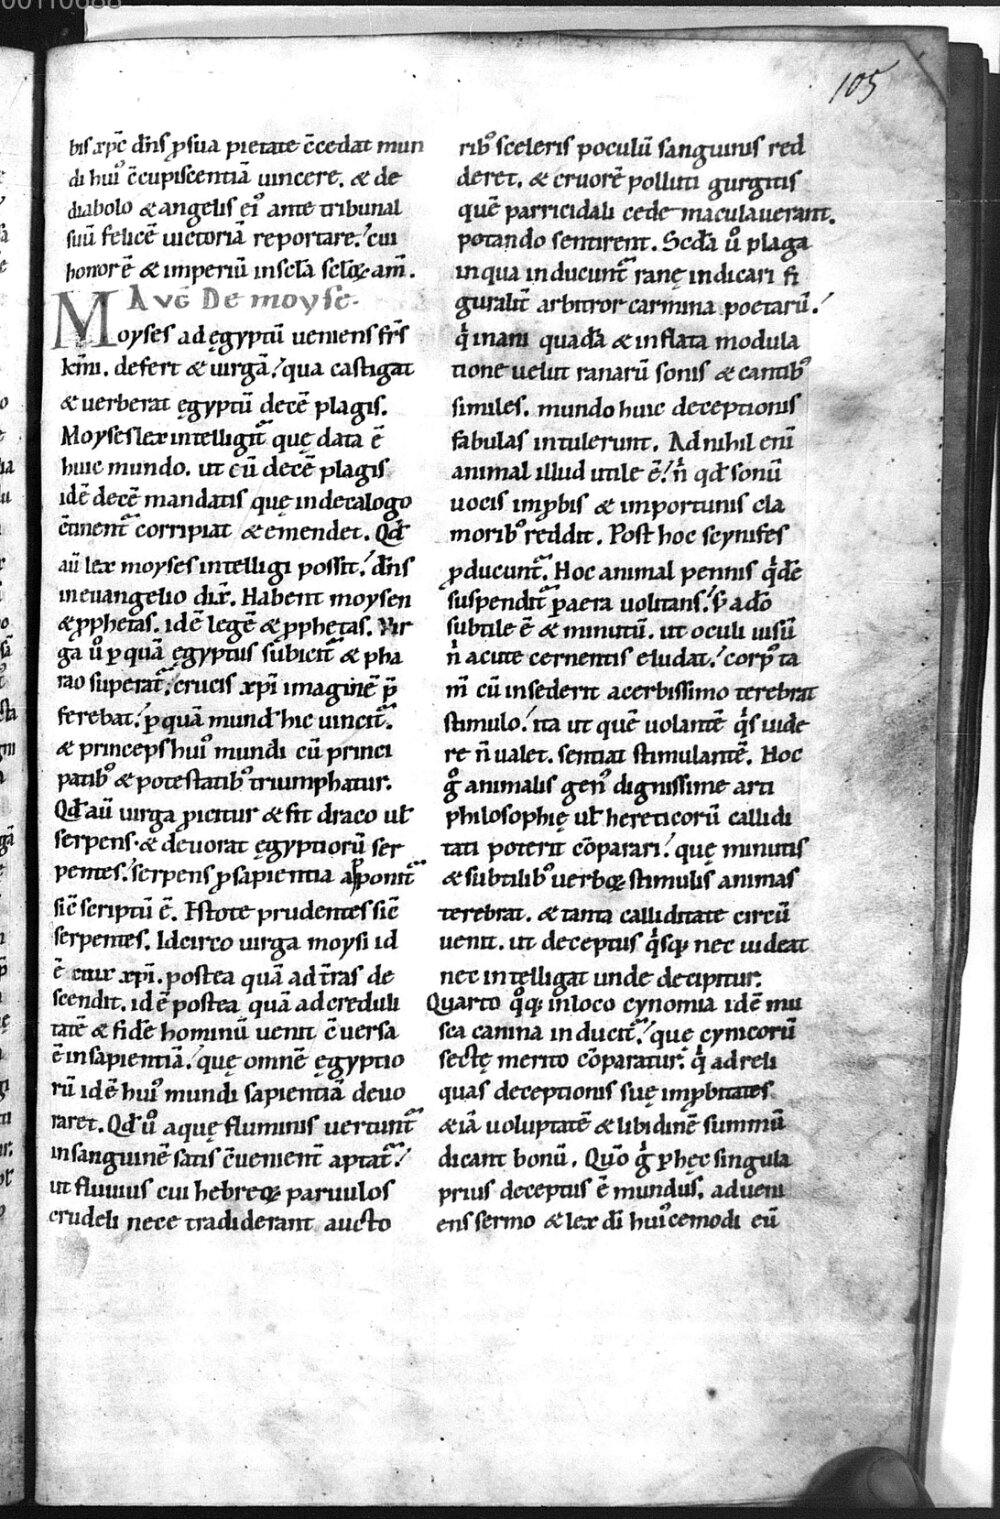 105
bis xp̄c dn̄s ꝓ sua pietate c̄cedat mun
di hui᷒ c̄cupiscentiā uincere. & de
diabolo & angelis ei᷒ ante tribunal
suū felicē uictoriā reportare. cui
honor ē & imperiū in scl̄a scl̄oꝝ am̄.
AVḠ De moyse.
Moyses ad ęgyptū ueniens fr̄s
km̄i. defert & uirgā. qua castigat
& uerberat ęgyptū decē plagis.
Moyses lex intelligit᷑ quę data ē
huic mundo. ut eū decē plagis
idē decē mandatis quę in decalogo
c̄tinent᷑ corripiat & emendet. Qd̄
aū lex moyses intelligi possit. dn̄s
in euangelio dix̄. Habent moysen
& ꝓphetas. idē legē & ꝓphetas. Vir
ga ů ꝑ quā ęgyptus subicit᷑ & pha
rao superat᷑. crucis xp̄i imaginē p̄
ferebat. ꝑ quā mund᷒ hic uincit᷑.
& princeps hui᷒ mundi cū princi
patib᷒ & potestatib᷒ triumphatur.
Qd̄ aū uirga ꝓicitur & fit draco ul̄
serpens. & deuorat ęgyptiorū ser
pentes. serpens ꝓ sapientia apponit᷑
sic̄ scriptū ē. Estote prudentes sic̄
serpentes. Idcirco uirga moysi id
ē crux xp̄i. postea quā ad tr̄as de
scendit. idē postea quā ad creduli
tatē & fidē hominū uenit c̄uersa
ē in sapientiā. quę omnē ęgyptio
rū idē hui᷒ mundi sapientiā deuo
raret. Qd̄ ů aquę fluminis uertunt᷑
in sanguinē satis c̄uenient᷑ aptat᷑.
ut fluuius cui hebreoꝝ paruulos
crudeli nece tradiderant aucto
rib᷒ sceleris poculū sanguinis red
deret. & cruorē polluti gurgitis
quē parricidali cede maculauerant.
potando sentirent. Scd̄a ů plaga
in qua inducunt᷑ ranę indicari fi
guralit̄ arbitror carmina poetarū.
q̇ inani quadā & inflata modula
tione uelut ranarū sonis & cantib᷒
similes. mundo huic deceptionis
fabulas intulerunt. Ad nihil enī
animal illud utile ē. n̄ qd̄ sonū
uocis imꝓbis & importunis cla
morib᷒ reddit. Post hoc scynifes
ꝓducunt᷑. Hoc animal pennis q̇dē
suspendit᷑ ꝑ aera uolitans. s̄ adō
subtile ē & minutū. ut oculi uisū
n̄ acute cernentis eludat. corp᷒ ta
m̄ cū insederit acerbissimo terebrat
stimulo. ita ut quē uolantē q̇s uide
re n̄ ualet. sentiat stimulantē. Hoc
g̊ animalis gen᷒ dignissime arti
philosophię ul̄ hereticorū callidi
tati poterit cōparari. quę minutis
& subtilib᷒ uerboꝝ stimulis animas
terebrat. & tanta calliditate circū
uenit. ut deceptus q̇sq; nec uideat
nec intelligat unde decipitur.
Quarto q̊q; in loco cynomia idē mu
sca canina inducit᷑. quę cynicorū
sectę merito cōparatur. q̇ ad reli
quas deceptionis suę imꝓbitates
& iā uoluptatē & libidinē summū
dicant bonū. Quō g̊ ꝑ hęc singula
prius deceptus ē mundus. adueni
ens sermo & lex dī hui᷒cemodi eū